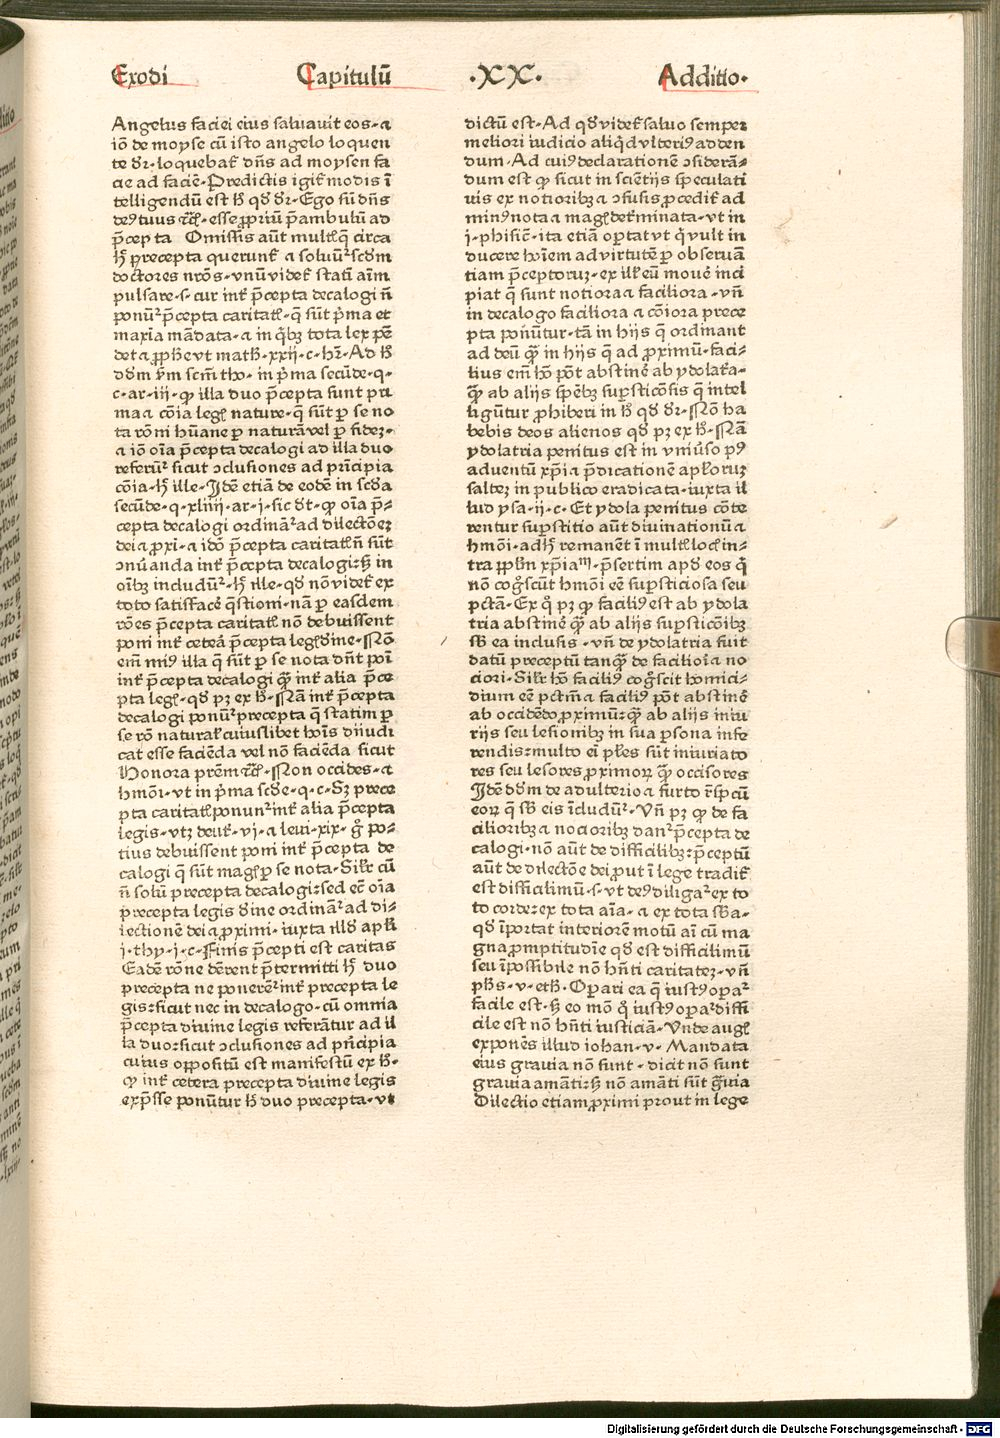 Exodi Capitulū ·XX· Additio·
Angelus faciei eius saluauit eos·⁊
iō de moyse cū isto angelo loquen
te dr̄· loquebat᷑ dn̄s ad moysen fa
cie ad faciē· Predictis igit᷑ modis ī
telligendū est ħ qđ dr̄· Ego sū dn̄s
deꝰ tuus ⁊cͭ· esse ꝓpriū p̄ambulū ad
p̄cepta Omissis aūt multꝭ q̄ circa
ħ precepta querunt᷑ ⁊ soluūt᷑ scd̄m
doctores nrōs· vnū videt᷑ statī aīm
pulsare·s· cur int᷑ p̄cepta decalogi nō
ponūt᷑ p̄cepta caritatꝭ· q̄ sūt p̄ma et
maxīa mādata·⁊ in q̄bꝫ tota lex pē
det ⁊ ꝓphē vt math·xxij·c·hr̄· Ad ħ
dd̄m ẜm scm̄ tho· in p̄ma secūde·q·
c·ar·iij·ꝙ illa duo p̄cepta sunt pri
ma ⁊ cōia legꝭ nature·q̄ sūt ꝑ se no
ta rōni hūane ꝑ naturā vel ꝑ fidez·
⁊ iō oīa p̄cepta decalogi ad illa duo
referūt᷑ sicut ꝯclusiones ad prīcipia
cōia·ħ ille· Idē etiā de eodē in scd̄a
secūde·q·xliiij·ar·i·sic dt̄·ꝙ oīa p̄⸗
cepta decalogi ordināt᷑ ad dilectōeꝫ
dei ⁊ ꝓxi·⁊ idō p̄cepta caritatꝭ nō sūt
ꝯnūanda int᷑ p̄cepta decalogi: sꝫ in
oībꝫ includūt᷑·ħ ille·qđ nō videt᷑ ex
toto satisfacē q̄stioni·nā ꝑ easdem
rōes p̄cepta caritatꝭ nō debuissent
poni int᷑ cetera p̄cepta legꝭ diīne· Nō
em̄ minꝰ illa q̄ sūt ꝑ se nota dn̄t poī
int᷑ p̄cepta decalogi q̄ꝫ int᷑ alia p̄ce
pta legꝭ·qđ pꝫ ex ħ· Nā int᷑ p̄cepta
decalogi ponūt᷑ precepta q̄ statim ꝑ
se rō natural᷑ cuiuslibet hoīs diiudi
cat esse faciēda vel nō faciēda sicut
Honora prēm ⁊cͭ· Non occides·⁊
hmōi·vt in p̄ma scd̄e·q·c· Sꝫ prece
pta caritatꝭ ponunt᷑ int᷑ alia p̄cepta
legis·vtꝫ deut᷑·vj·⁊ leui·xix· g̊ po⸗
tius debuissent poni int᷑ p̄cepta de
calogi q̄ sūt magꝭ ꝑ se nota· Silr̄ cū
nō solū precepta decalogi: sed ec̄ oīa
precepta legis diīne ordināt᷑ ad di⸗
lectionem dei ⁊ ꝓximi· iuxta illđ apl̄i
j·thy·j·c· Finis p̄cepti est caritas
Eadē rōne dērent p̄termitti ħ duo
precepta ne ponerēt᷑ int᷑ precepta le
gis: sicut nec in decalogo· cū omnia
p̄cepta diuine legis referātur ad il
la duo: sicut ꝯclusiones ad prīcipia
cuius oppositū est manifestū ex ħ·
ꝙ int᷑ cetera precepta diuine legis
exp̄sse ponūtur ħ duo precepta·vt
dictū est· Ad qđ videt᷑ saluo semper
meliori iudicio aliqđ vlteriꝰ adden
dum· Ad cuiꝰ declarationē ꝯsiderā⸗
dum est ꝙ sicut in scientijs speculati
uis ex notioribꝫ ⁊ ꝯfusis procedit᷑ ad
minꝰ nota ⁊ magꝭ det᷑minata·vt in
j·phisic̄·ita etiā optat vt q̇ vult in
ducere hoīem ad virtutē ꝑ obseruā
tiam p̄ceptoruꝫ·ex illꝭ eū mouē inci
piat q̄ sunt notiora ⁊ faciliora·vn̄
in decalogo faciliora ⁊ cōiora prece
pta ponūtur·tā in hijs q̄ ordinant
ad deū q̄ꝫ in hijs q̄ ad ꝓximū·faci⸗
lius em̄ hō pōt abstinē ab ydolat᷑a·
q̄ꝫ ab alijs spēbꝫ suꝑsticōsis q̄ intel
ligūtur ꝓhiberi in ħ qđ dr̄· Nō ha
bebis deos alienos qđ pꝫ ex ħ· Nā
ydolatria penitus est in vniūso pꝰ
aduentū xp̄i ⁊ p̄dicationē apl̄oruꝫ
salteꝫ in publico eradicata·iuxta il
lud ysa·ij·c· Et ydola penitus cōte
rentur suꝑstitio aūt diuinationū ⁊
hmōi·adħ remanēt ī multꝭ locꝭ in⸗
tra ppl̄m xp̄iaᵐ·p̄sertim apđ eos q̇
nō cog̊scūt hmōi eē suꝑsticiosa seu
pctā· Ex q̊ pꝫ ꝙ faciliꝰ est ab ydola
tria abstinē q̄ꝫ ab alijs suꝑsticōibꝫ
sƀ ea inclusis·vn̄ de ydolatria fuit
datū preceptū tanq̄ꝫ de faciliori ⁊ no
ciori· Silr̄ hō faciliꝰ cog̊scit homici⸗
dium eē pctm̄ ⁊ faciliꝰ pōt abstinē
ab occidēdo ꝓximū: q̄ꝫ ab alijs iniu
rijs seu lesionibꝫ in sua ꝑsona infe
rendis: multo em̄ pl̄es sūt iniuriato
res seu lesores ꝓximoꝝ q̄ꝫ occisores
Idē dd̄m de adulterio ⁊ furto r̄sp̄cū
eoꝝ q̄ sƀ eis īcludūt᷑· Vn̄ pꝫ ꝙ de fa
cilioribꝫ ⁊ nocioribꝫ dant᷑ p̄cepta de
calogi·nō aūt de difficilibꝫ: p̄ceptū
aūt de dilectōe dei ꝓut ī lege tradit᷑
est difficilimū·s·vt deꝰ diligat᷑ ex to
to corde: ex tota aīa·⁊ ex tota sƀa·
qđ īportat interiorē motū aī cū ma
gna ꝓmptitudīe qđ est difficilimū
seu īpossibile nō hn̄ti caritateꝫ·vn̄
phs̄·v·eth̄· Oꝑari ea q̄ iustꝰ oꝑat᷑
facile est·sꝫ eo mō q̊ iustꝰ oꝑat᷑ diffi
cile est nō hn̄ti iusticiā· Vnde augꝭ
exponēs illud iohan·v· Mandata
eius grauia nō sunt· dicit nō sunt
grauia amāti: sꝫ nō amāti sūt g̈uia
Dilectio etiam ꝓximi prout in lege
Digitalisierung gefördert durch die Deutsche Forschungsgemeinschaft - DFG